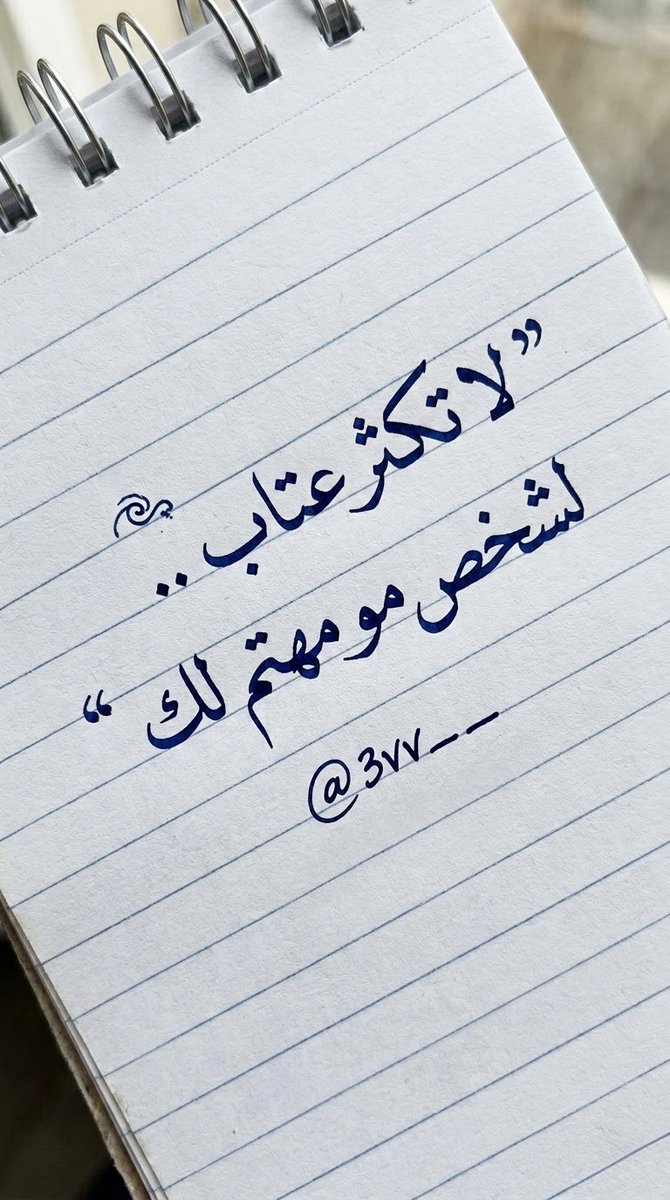 ”لا تكثر عتاب ..
لشخص مو مهتم لك “
@3vv__